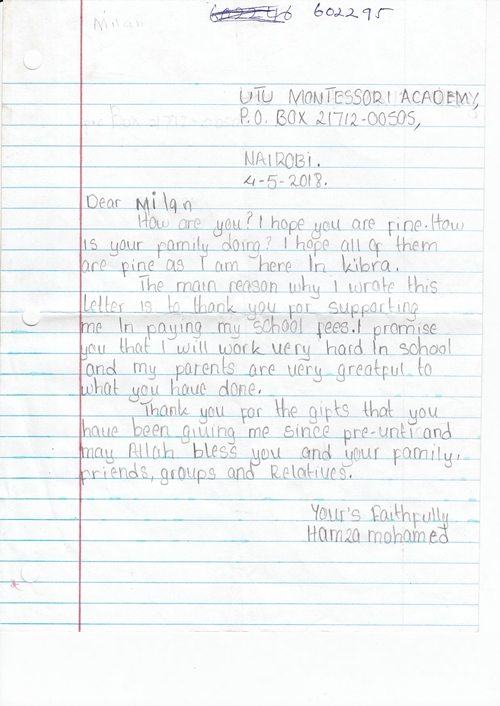 Milan 602295
UTU MONTESSORI ACADEMY,
P.O. BOX 21712-00505,
NAIROBI.
4-5-2018.
Dear Milan
How are you? I hope you are fine. How
is your family doing? I hope all of them
are fine as I am here In kibra.
The main reason why I wrote this
letter is to thank you for supporting
me In paying my school fees. I promise
you that I will work very hard In school
and my parents are very greatful to
what you have done.
Thank you for the gifts that you
have been giving me since pre-unti and
may Allah bless you and your family,
friends, groups and Relatives.
Your's Faithfully
Hamza mohamed